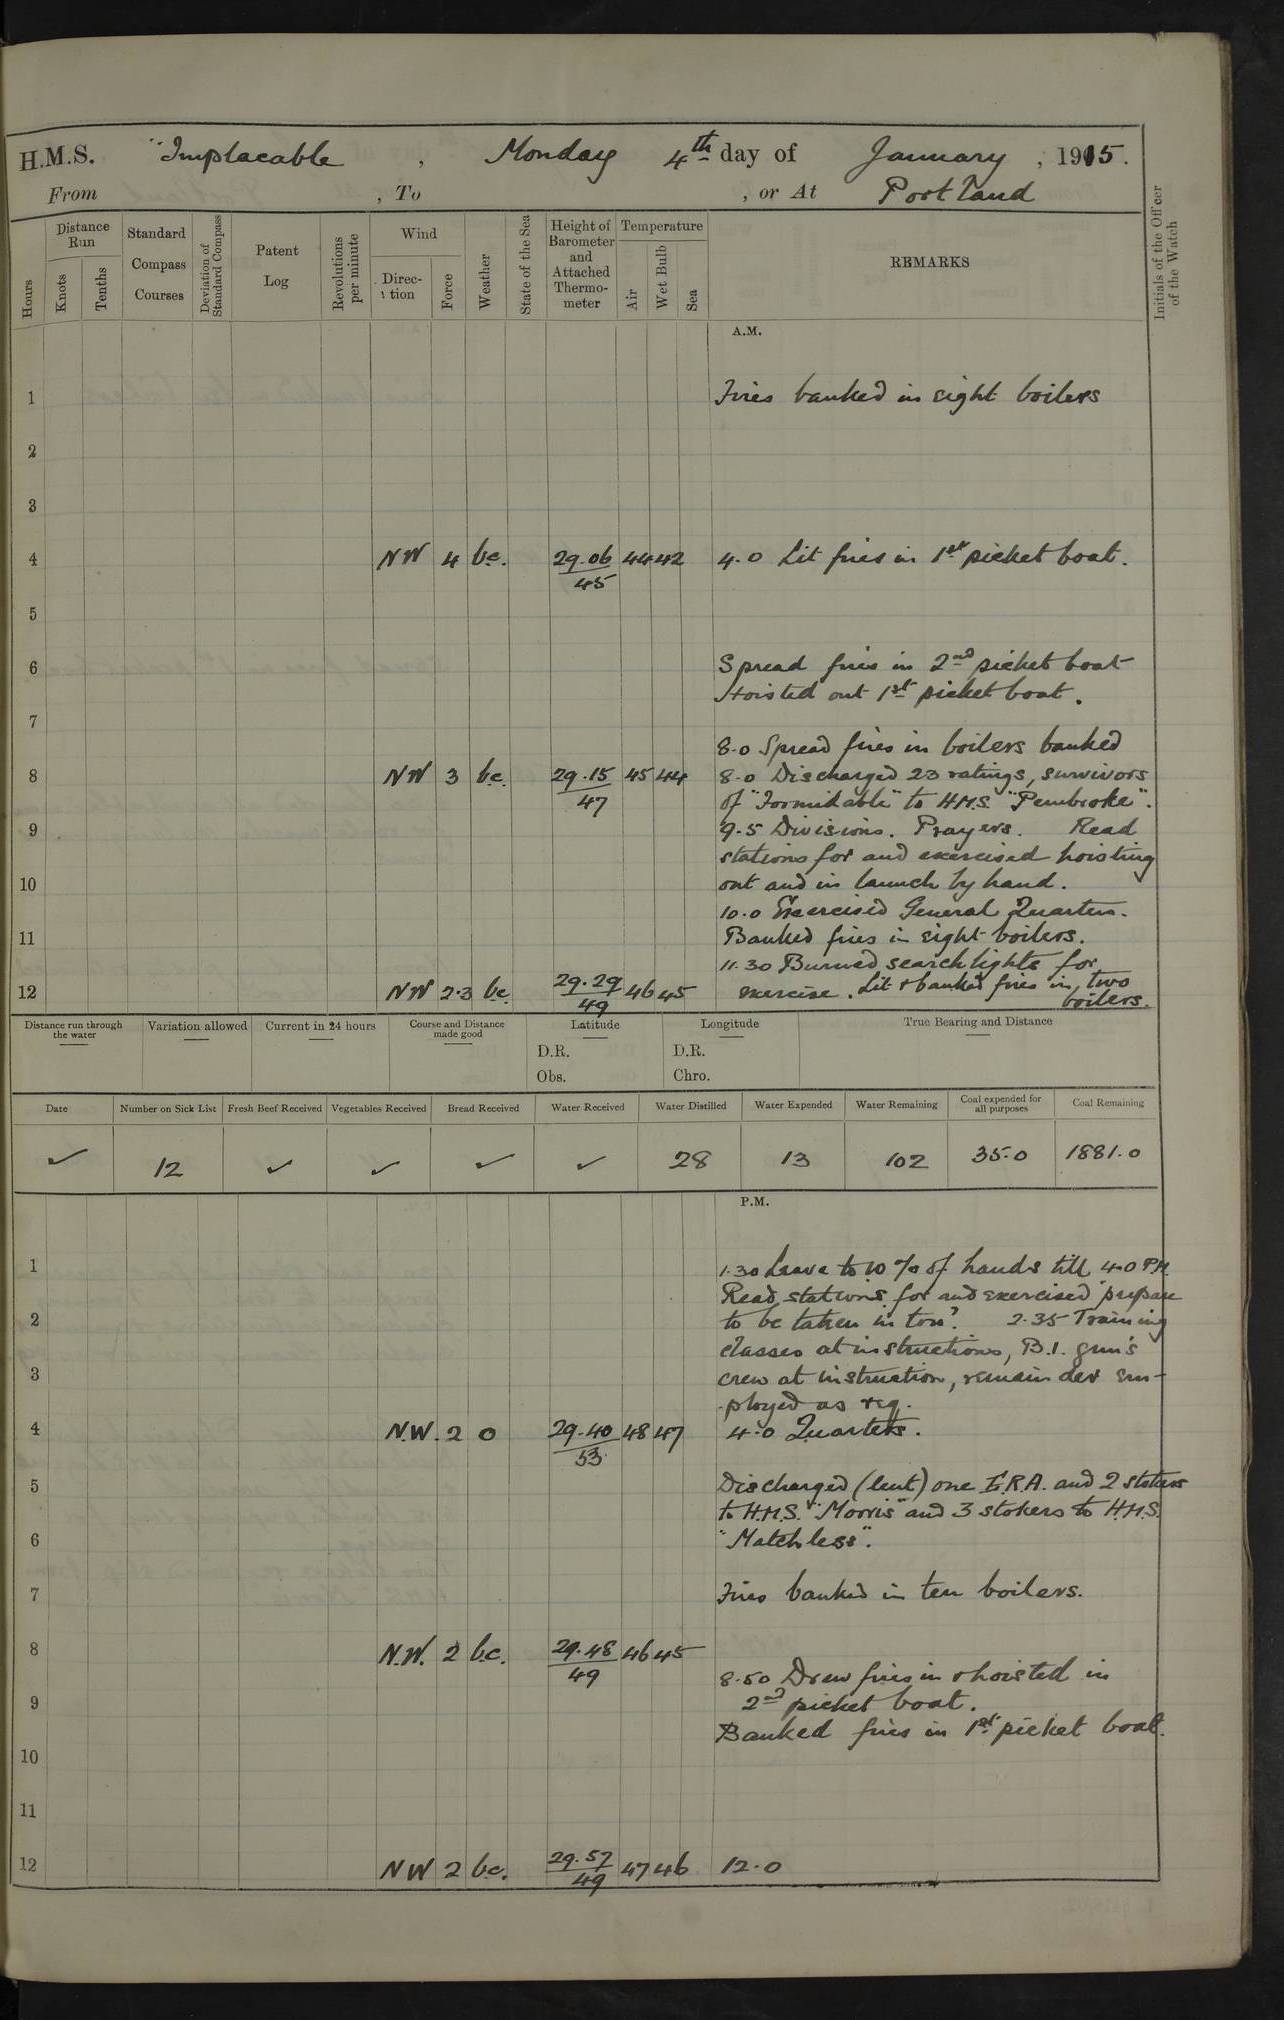 H.M.S. "Implacable , Monday 4th day of January , 1915.
From , To , or At Portland
Hours
Distance Run
Knots
Tenths
Standard Compass Courses
Deviation of Standard Compass
Patent Log
Revolutions per minute
Wind
Direction
Force
Weather
State of the Sea
Height of Barometer and Attached Thermometer
Temperature
Air
Wet Bulb
Sea
REMARKS
Initials of the Officer of the Watch
A.M.
1 Fires banked in eight boilers
2
3
4 NW 4 b.c. 29.06/45 44 42 4.0 Lit fires in 1st picket boat.
5
6 Spread fires in 2nd picket boat
Hoisted out 1st picket boat.
7
8.0 Spread fires in boilers banked
8 NW 3 b.c. 29.15/47 45 44 8.0 Discharged 23 ratings, survivors
of "Formidable" to H.M.S. "Pembroke".
9 9.5 Divisions. Prayers. Read
stations for and exercised hoisting
10 out and in launch by hand.
10.0 Exercised General Quarters.
11 Banked fires in eight boilers.
11.30 Burned searchlights for
12 NW 2.3 b.c. 29.29/49 46 45 exercise. Lit & banked fires in two
boilers.
Distance run through the water
Variation allowed
Current in 24 hours
Course and Distance made good
Latitude
D.R.
Obs.
Longitude
D.R.
Chro.
True Bearing and Distance
Date Number on Sick List Fresh Beef Received Vegetables Received Bread Received Water Received Water Distilled Water Expended Water Remaining Coal expended for all purposes Coal Remaining
✓ 12 ✓ ✓ ✓ ✓ 28 13 102 35.0 1881.0
P.M.
1 1.30 Leave to 10 % of hands till 4.0 PM
Read stations for and exercised "prepare
2 to be taken in tow". 2.35 Training
classes at instructions, B.1. gun's
3 crew at instruction, remainder em-
ployed as req.
4 N.W. 2 o 29.40/53 48 47 4.0 Quarters.
5 Discharged (lent) one E.R.A. and 2 stokers
to H.M.S. "Morris" and 3 stokers to H.M.S.
6 "Matchless".
7 Fires banked in ten boilers.
8 N.W. 2 b.c. 29.48/49 46 45
8.50 Drew fires in & hoisted in
9 2nd picket boat.
Banked fires in 1st picket boat.
10
11
12 NW 2 b.c. 29.57/49 47 46 12.0